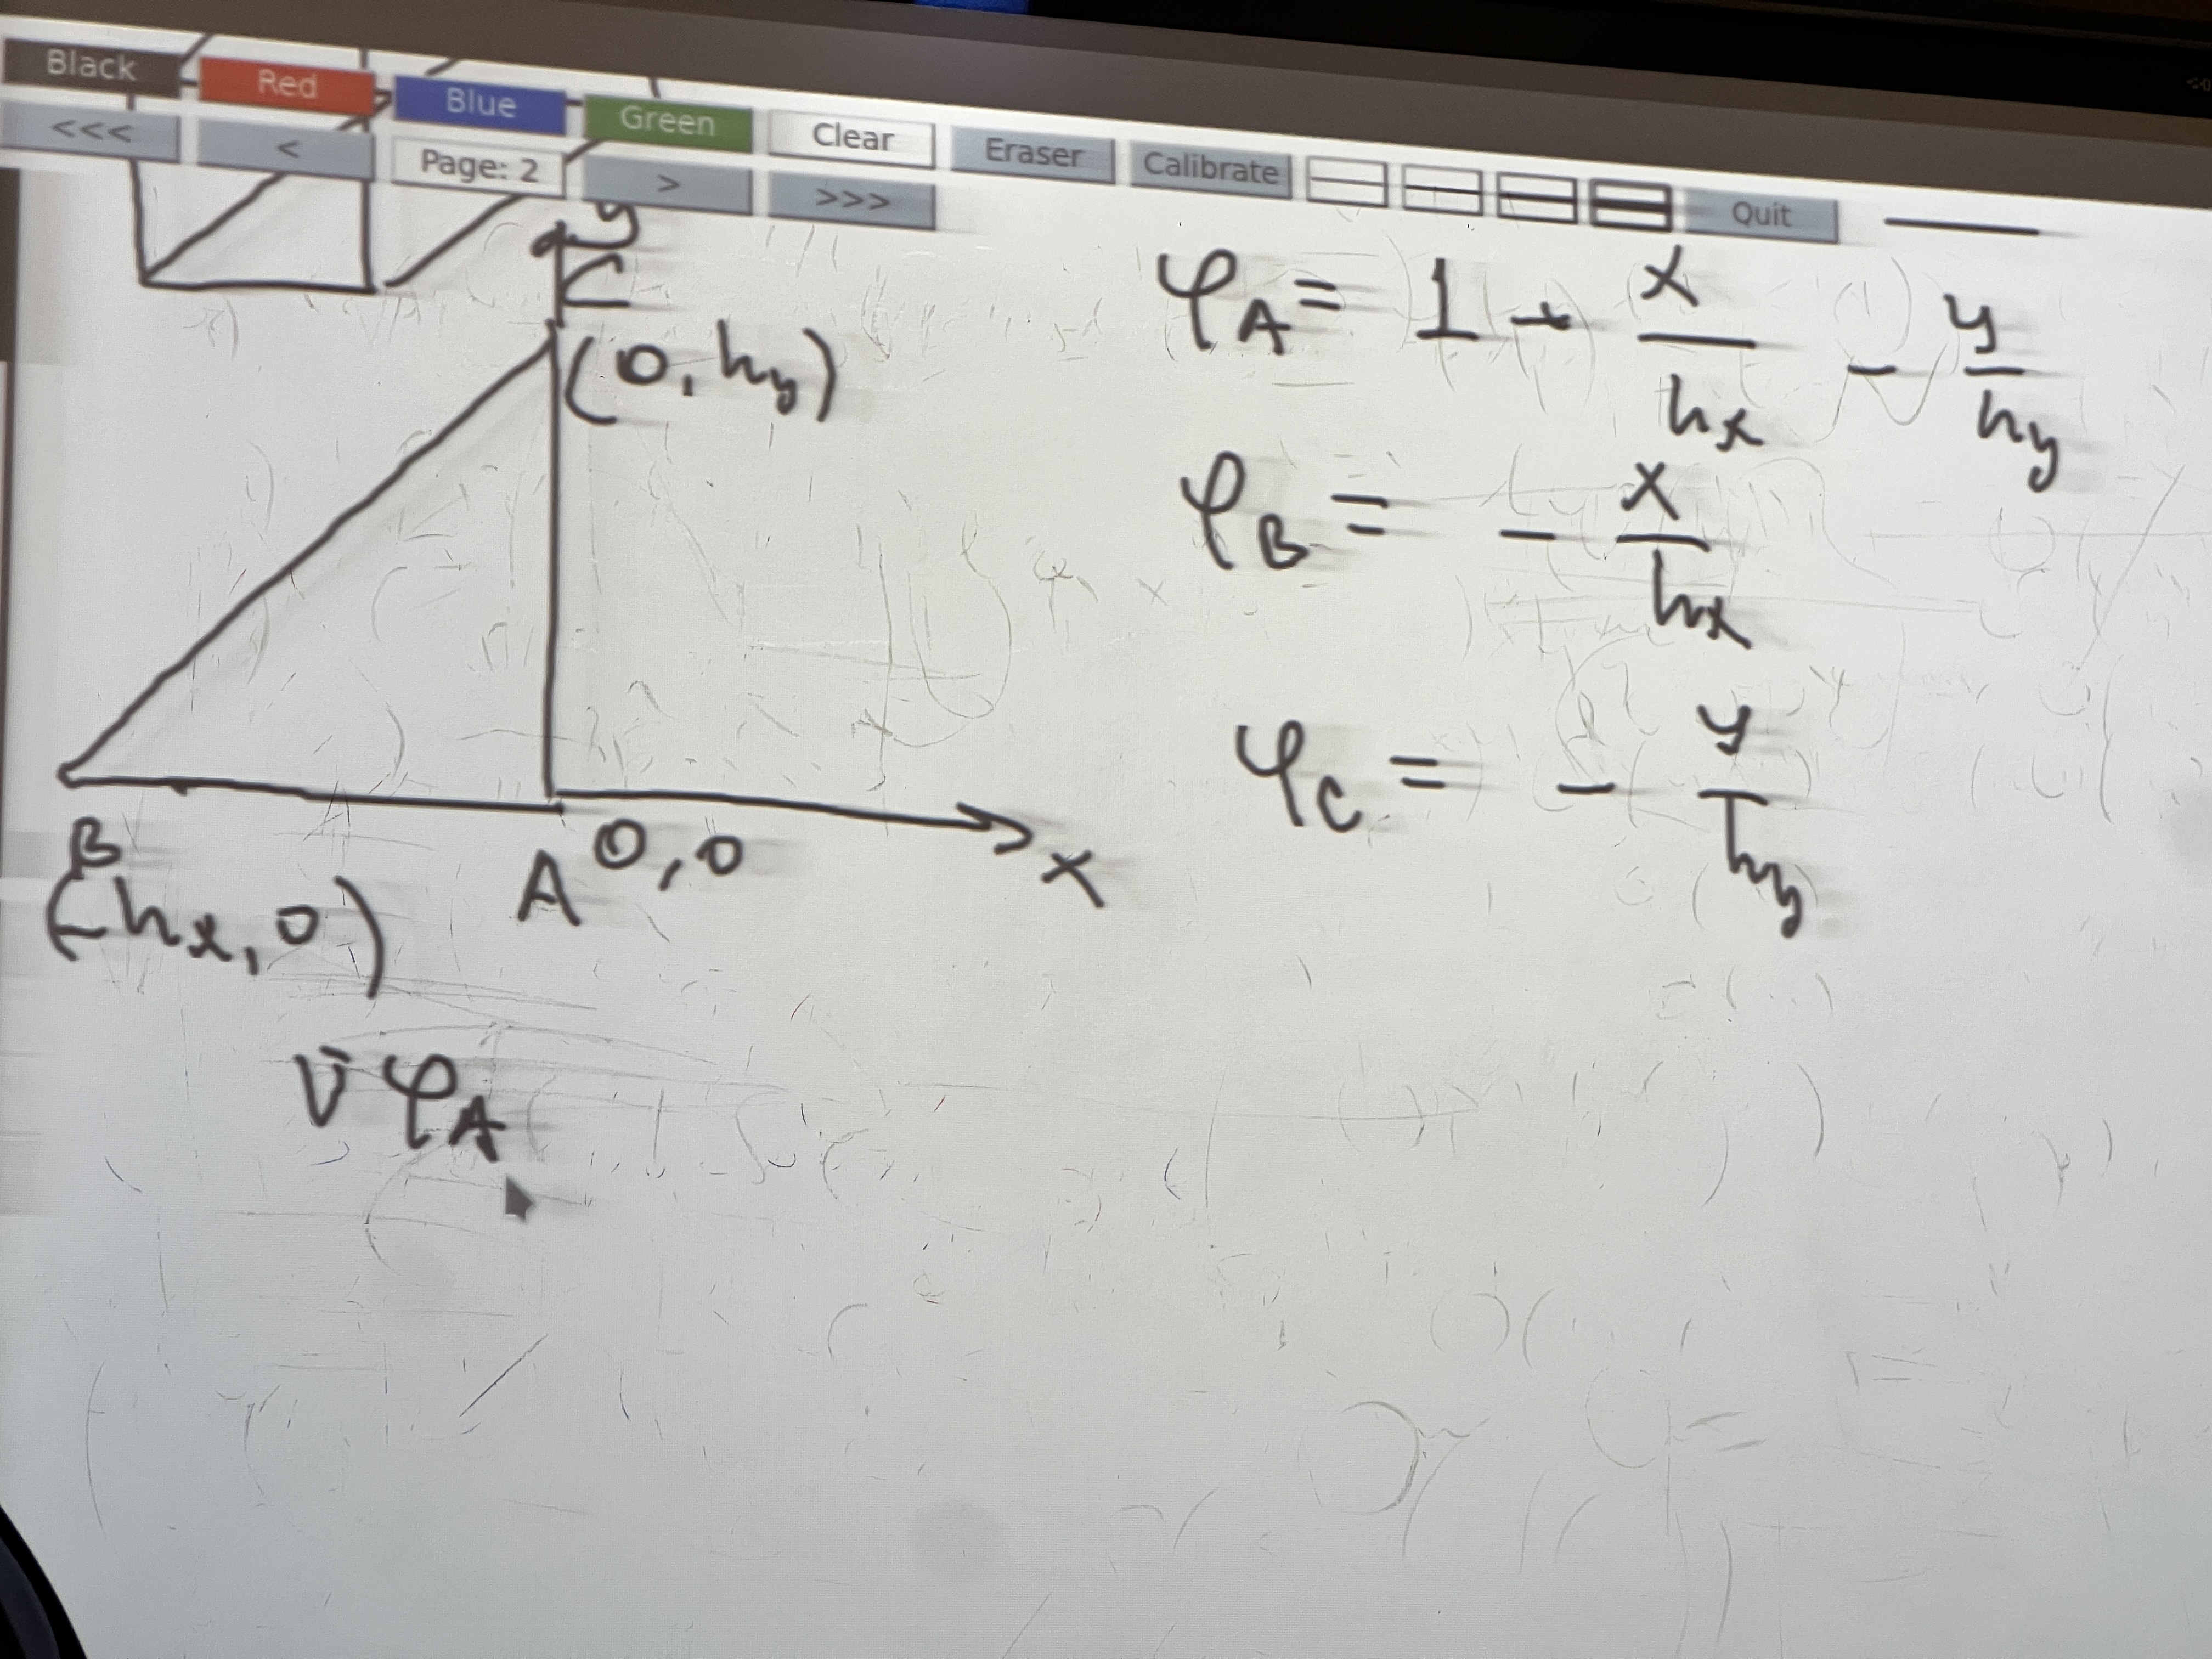 Black Red Blue Green Clear Eraser Calibrate Quit
<<< < Page: 2 > >>>
y
C
(0, hy)
B
(-hx, 0)
A 0,0
x
∇φA
φA = 1 + x/hx - y/hy
φB = - x/hx
φC = - y/hy